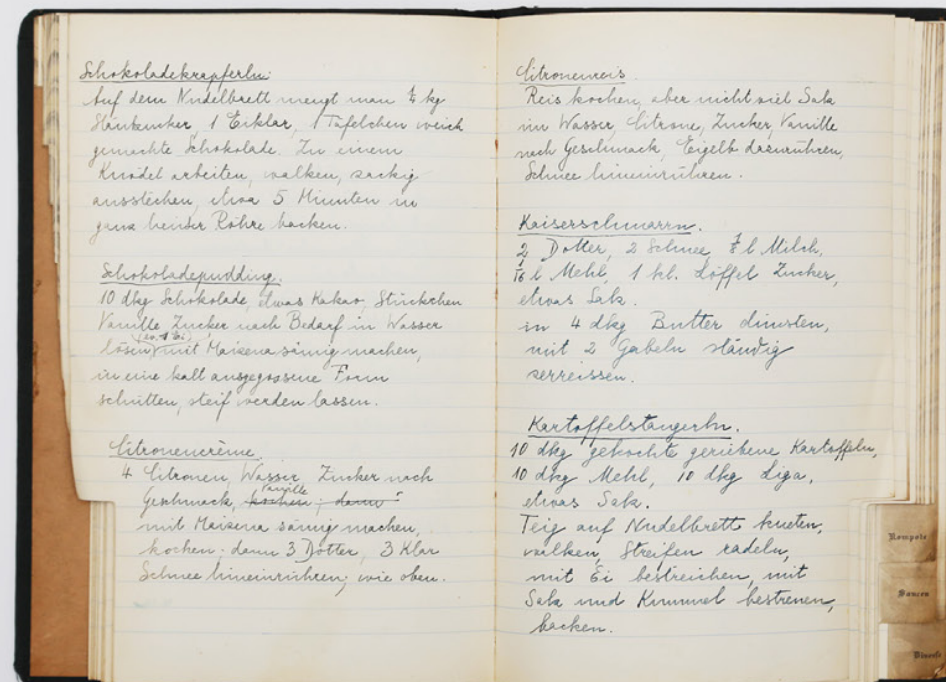 Schokoladekrapferln.
Auf dem Nudelbrett mengt man ¼ kg
Staubzucker, 1 Eiklar, 1 Täfelchen weich
gemachte Schokolade. Zu einem
Knödel arbeiten, walken, zackig
ausstechen, etwa 5 Minuten in
ganz heißer Röhre backen.
Schokoladepudding.
10 dkg Schokolade, etwas Kakao, Stückchen
Vanille, Zucker nach Bedarf in Wasser
(ev. 1 Ei)
lösen, mit Maizena sämig machen,
in eine kalt ausgegossene Form
schütten, steif werden lassen.
Citronencrème.
4 Citronen, Wasser, Zucker nach
Vanille
Geschmack, kochen; dann
mit Maizena sämig machen,
kochen. dann 3 Dotter, 3 Klar
Schnee hineinrühren; wie oben.
Citronenreis.
Reis kochen, aber nicht viel Salz
im Wasser, Citrone, Zucker, Vanille
nach Geschmack, Eigelb dazurühren,
Schnee hineinrühren.
Kaiserschmarrn.
2 Dotter, 2 Schnee, ⅛ l Milch,
1/16 l Mehl, 1 kl. Löffel Zucker,
etwas Salz.
in 4 dkg Butter dünsten,
mit 2 Gabeln ständig
zerreissen.
Kartoffelstangerln.
10 dkg gekochte geriebene Kartoffeln,
10 dkg Mehl, 10 dkg Liga,
etwas Salz.
Teig auf Nudelbrett kneten,
walken, Streifen radeln,
mit Ei bestreichen, mit
Salz und Kümmel bestreuen,
backen.
Kompote
Saucen